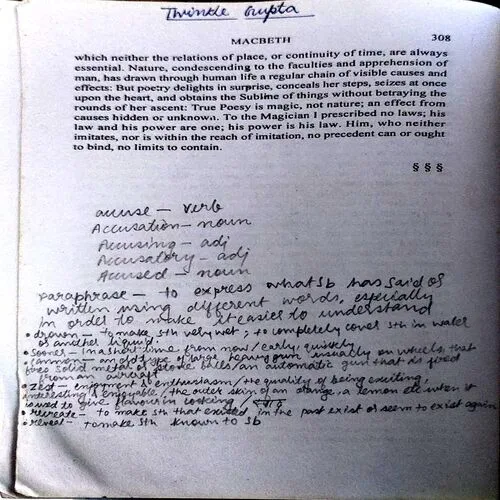 Twinkle Gupta
MACBETH 308
which neither the relations of place, or continuity of time, are always
essential. Nature, condescending to the faculties and apprehension of
man, has drawn through human life a regular chain of visible causes and
effects: But poetry delights in surprise, conceals her steps, seizes at once
upon the heart, and obtains the Sublime of things without betraying the
rounds of her ascent: True Poesy is magic, not nature; an effect from
causes hidden or unknown. To the Magician I prescribed no laws; his
law and his power are one; his power is his law. Him, who neither
imitates, nor is within the reach of imitation, no precedent can or ought
to bind, no limits to contain.
§ § §
accuse - verb
Accusation - noun
Accusing - adj
Accusatory - adj
Accused - noun
paraphrase - to express what sb has said or
written using different words, especially
in order to make it easier to understand
• drown - to make sth very wet; to completely cover sth in water
or another liquid.
• sooner - in a short time from now / early; quickly
• cannon - an old type of large heavy gun usually on wheels, that
fired solid metal or stone balls / an automatic gun that is fired
from an aircraft
• zest - enjoyment & enthusiasm / the quality of being exciting,
interesting & enjoyable / the outer skin of an orange, a lemon etc when it
is used to give flavour in cooking /
• recreate - to make sth that existed in the past exist or seem to exist again
• reveal - to make sth known to sb